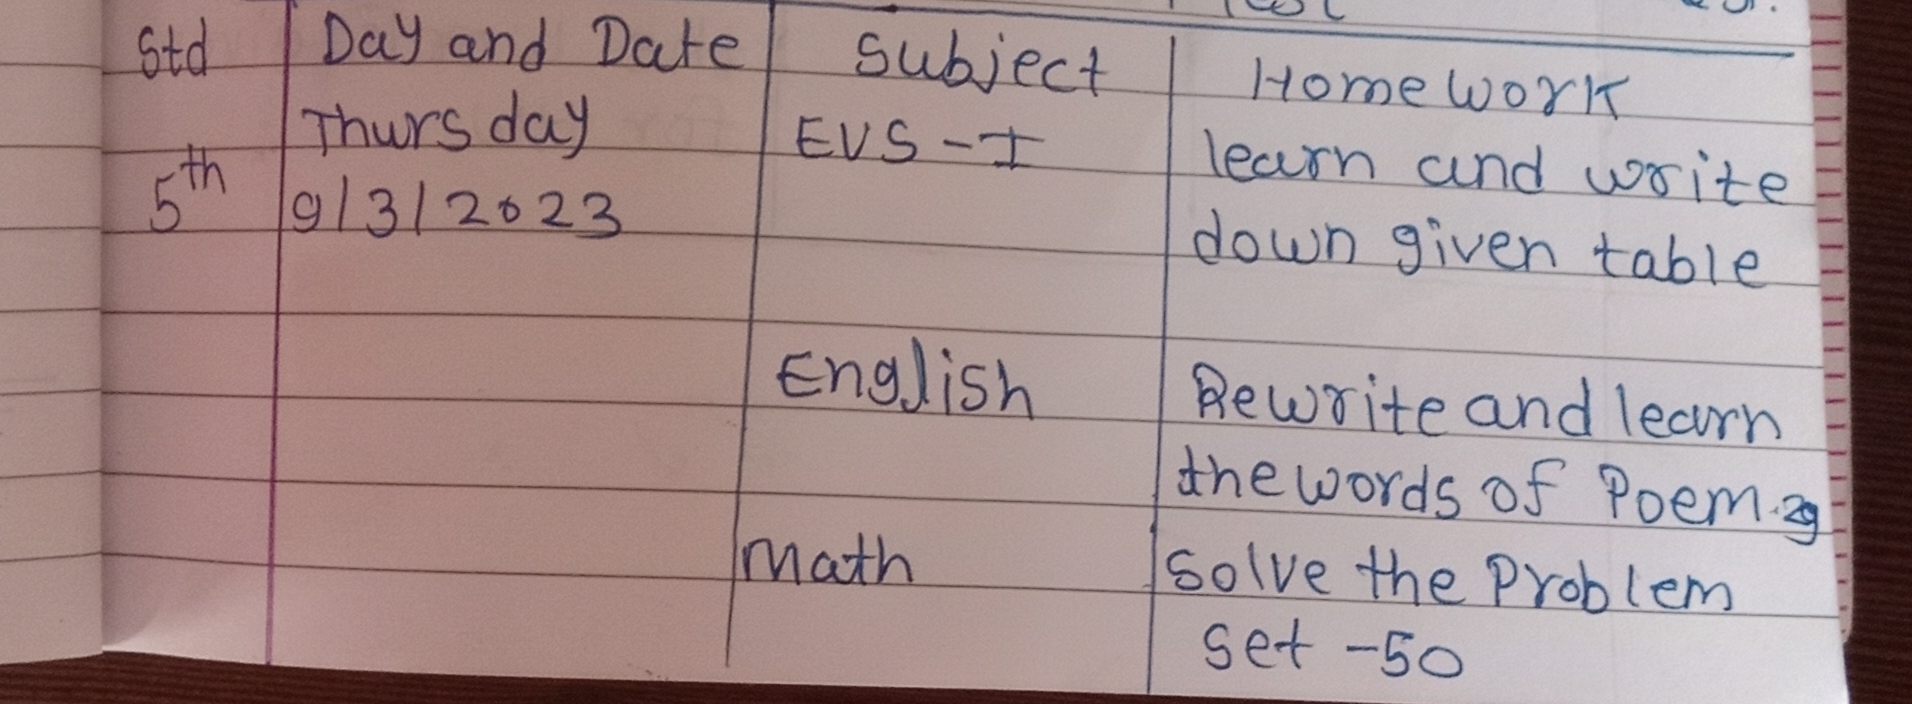 Std Day and Date Subject Homework
Thursday EVS - I learn and write
5th 9/3/2023 down given table
English Rewrite and learn
the words of Poem. 29
Math Solve the Problem
Set - 50